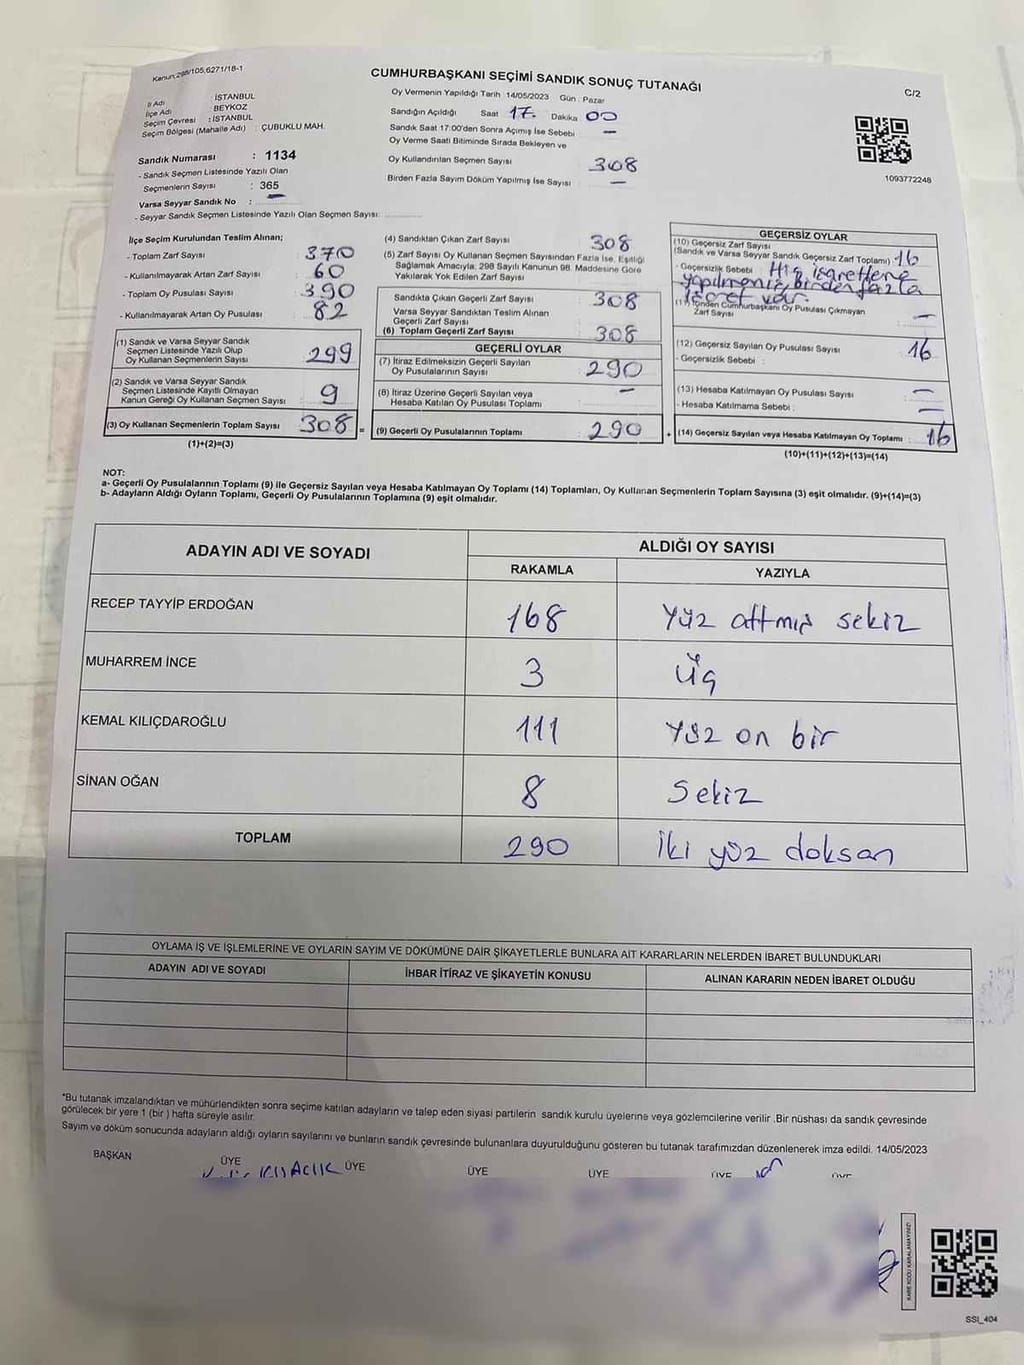 Kanun;298/105,6271/18-1
CUMHURBAŞKANI SEÇİMİ SANDIK SONUÇ TUTANAĞI
C/2
İl Adı : İSTANBUL
İlçe Adı : BEYKOZ
Seçim Çevresi : İSTANBUL
Seçim Bölgesi (Mahalle Adı) : ÇUBUKLU MAH.
Sandık Numarası : 1134
- Sandık Seçmen Listesinde Yazılı Olan
Seçmenlerin Sayısı : 365
Varsa Seyyar Sandık No : —
- Seyyar Sandık Seçmen Listesinde Yazılı Olan Seçmen Sayısı:
Oy Vermenin Yapıldığı Tarih : 14/05/2023 Gün : Pazar
Sandığın Açıldığı Saat 17. Dakika 00
Sandık Saat 17:00'den Sonra Açımış İse Sebebi —
Oy Verme Saati Bitiminde Sırada Bekleyen ve
Oy Kullandırılan Seçmen Sayısı 308
Birden Fazla Sayım Döküm Yapılmış İse Sayısı —
1093772248
İlçe Seçim Kurulundan Teslim Alınan;
- Toplam Zarf Sayısı 370
- Kullanılmayarak Artan Zarf Sayısı 60
- Toplam Oy Pusulası Sayısı 390
- Kullanılmayarak Artan Oy Pusulası 82
(1) Sandık ve Varsa Seyyar Sandık
Seçmen Listesinde Yazılı Olup
Oy Kullanan Seçmenlerin Sayısı 299
(2) Sandık ve Varsa Seyyar Sandık
Seçmen Listesinde Kayıtlı Olmayan
Kanun Gereği Oy Kullanan Seçmen Sayısı 9
(3) Oy Kullanan Seçmenlerin Toplam Sayısı 308 =
(1)+(2)=(3)
(4) Sandıktan Çıkan Zarf Sayısı 308
(5) Zarf Sayısı Oy Kullanan Seçmen Sayısından Fazla İse, Eşitliği
Sağlamak Amacıyla, 298 Sayılı Kanunun 98. Maddesine Göre
Yakılarak Yok Edilen Zarf Sayısı
Sandıkta Çıkan Geçerli Zarf Sayısı 308
Varsa Seyyar Sandıktan Teslim Alınan
Geçerli Zarf Sayısı
(6) Toplam Geçerli Zarf Sayısı 308
GEÇERLİ OYLAR
(7) İtiraz Edilmeksizin Geçerli Sayılan
Oy Pusulalarının Sayısı 290
(8) İtiraz Üzerine Geçerli Sayılan veya
Hesaba Katılan Oy Pusulası Toplamı —
(9) Geçerli Oy Pusulalarının Toplamı 290 +
GEÇERSİZ OYLAR
(10) Geçersiz Zarf Sayısı
(Sandık ve Varsa Seyyar Sandık Geçersiz Zarf Toplamı) 16
- Geçersizlik Sebebi : Hiç işaretleme
yapılmamış, birden fazla
işaret var.
(11) İçinden Cumhurbaşkanı Oy Pusulası Çıkmayan
Zarf Sayısı —
(12) Geçersiz Sayılan Oy Pusulası Sayısı 16
- Geçersizlik Sebebi :
(13) Hesaba Katılmayan Oy Pusulası Sayısı —
- Hesaba Katılmama Sebebi : —
(14) Geçersiz Sayılan veya Hesaba Katılmayan Oy Toplamı : 16
(10)+(11)+(12)+(13)=(14)
NOT:
a- Geçerli Oy Pusulalarının Toplamı (9) ile Geçersiz Sayılan veya Hesaba Katılmayan Oy Toplamı (14) Toplamları, Oy Kullanan Seçmenlerin Toplam Sayısına (3) eşit olmalıdır. (9)+(14)=(3)
b- Adayların Aldığı Oyların Toplamı, Geçerli Oy Pusulalarının Toplamına (9) eşit olmalıdır.
ADAYIN ADI VE SOYADI
ALDIĞI OY SAYISI
RAKAMLA YAZIYLA
RECEP TAYYİP ERDOĞAN 168 Yüz altmış sekiz
MUHARREM İNCE 3 Üç
KEMAL KILIÇDAROĞLU 111 Yüz on bir
SİNAN OĞAN 8 Sekiz
TOPLAM 290 İki yüz doksan
OYLAMA İŞ VE İŞLEMLERİNE VE OYLARIN SAYIM VE DÖKÜMÜNE DAİR ŞİKAYETLERLE BUNLARA AİT KARARLARIN NELERDEN İBARET BULUNDUKLARI
ADAYIN ADI VE SOYADI İHBAR İTİRAZ VE ŞİKAYETİN KONUSU ALINAN KARARIN NEDEN İBARET OLDUĞU
*Bu tutanak imzalandıktan ve mühürlendikten sonra seçime katılan adayların ve talep eden siyasi partilerin sandık kurulu üyelerine veya gözlemcilerine verilir .Bir nüshası da sandık çevresinde
görülecek bir yere 1 (bir ) hafta süreyle asılır.
Sayım ve döküm sonucunda adayların aldığı oyların sayılarını ve bunların sandık çevresinde bulunanlara duyurulduğunu gösteren bu tutanak tarafımızdan düzenlenerek imza edildi. 14/05/2023
BAŞKAN ÜYE ÜYE ÜYE ÜYE ÜYE ÜYE
KARE KODU KARALAMAYINIZ!
SSI_404